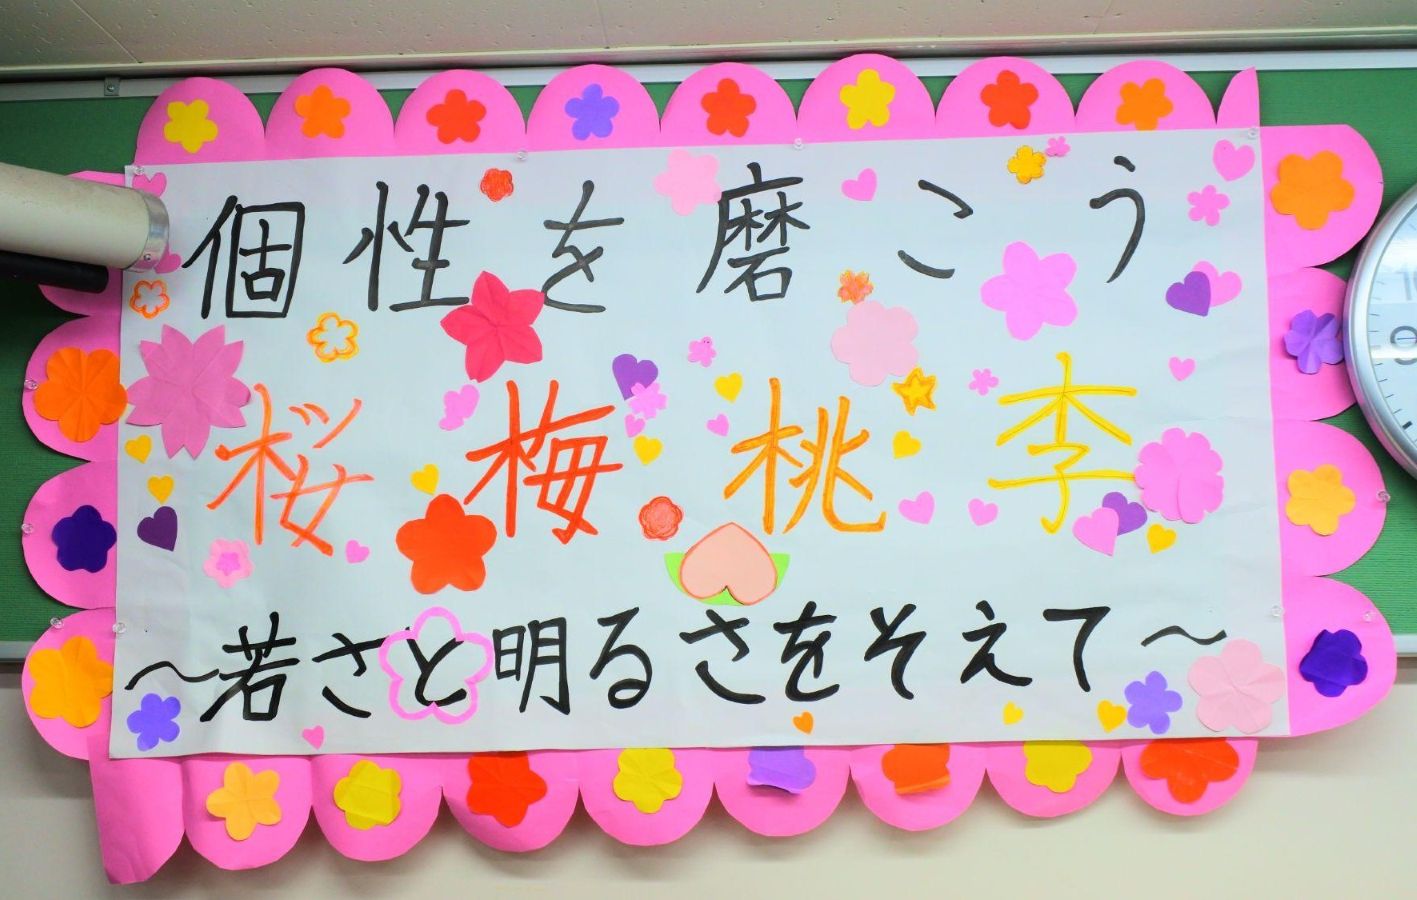 個性を磨こう
桜梅桃李
～若さと明るさをそえて～
9